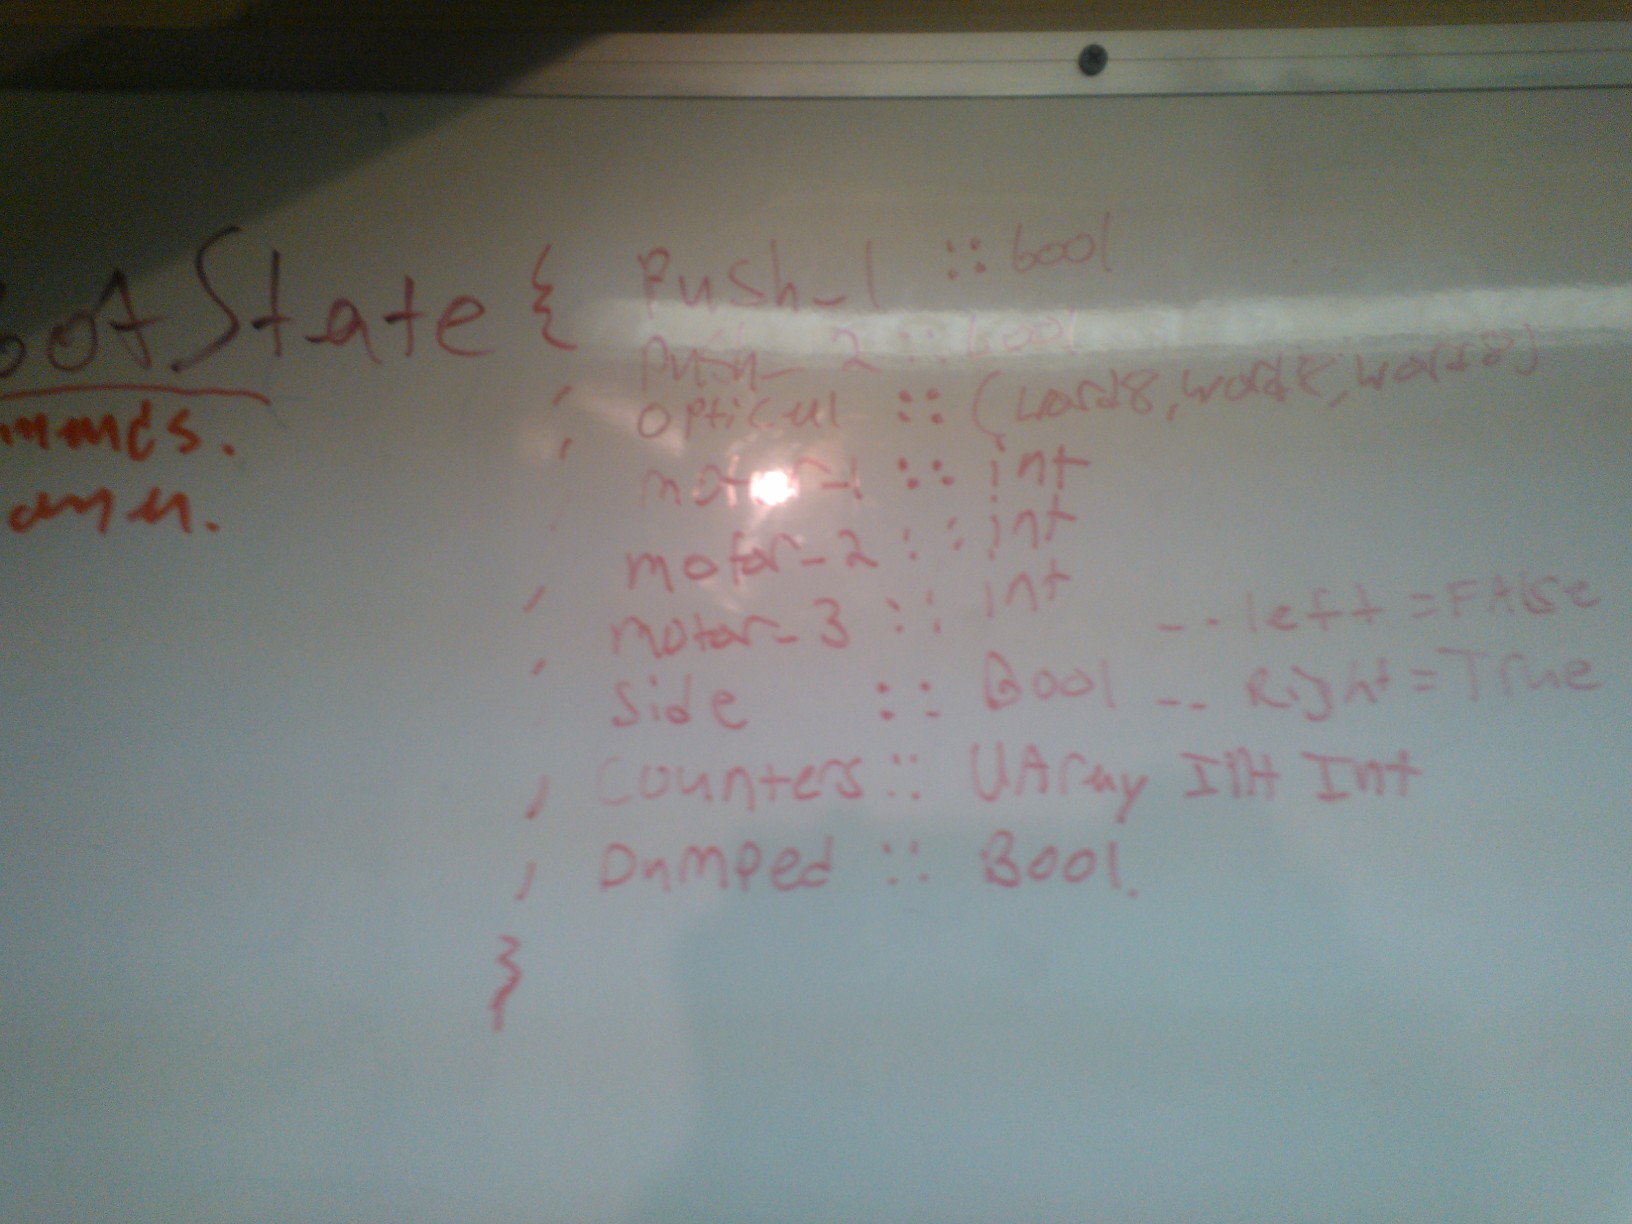 ootState { Push_1 :: bool
Push_2 :: bool
, optical :: (word8, word8, word8)
, motor-1 :: int
motor-2 :: int
, motor-3 :: int
, Side :: Bool -- left = FAlse
-- Right = True
, Counters :: UArray Int Int
, Dumped :: Bool.
}
mmands.